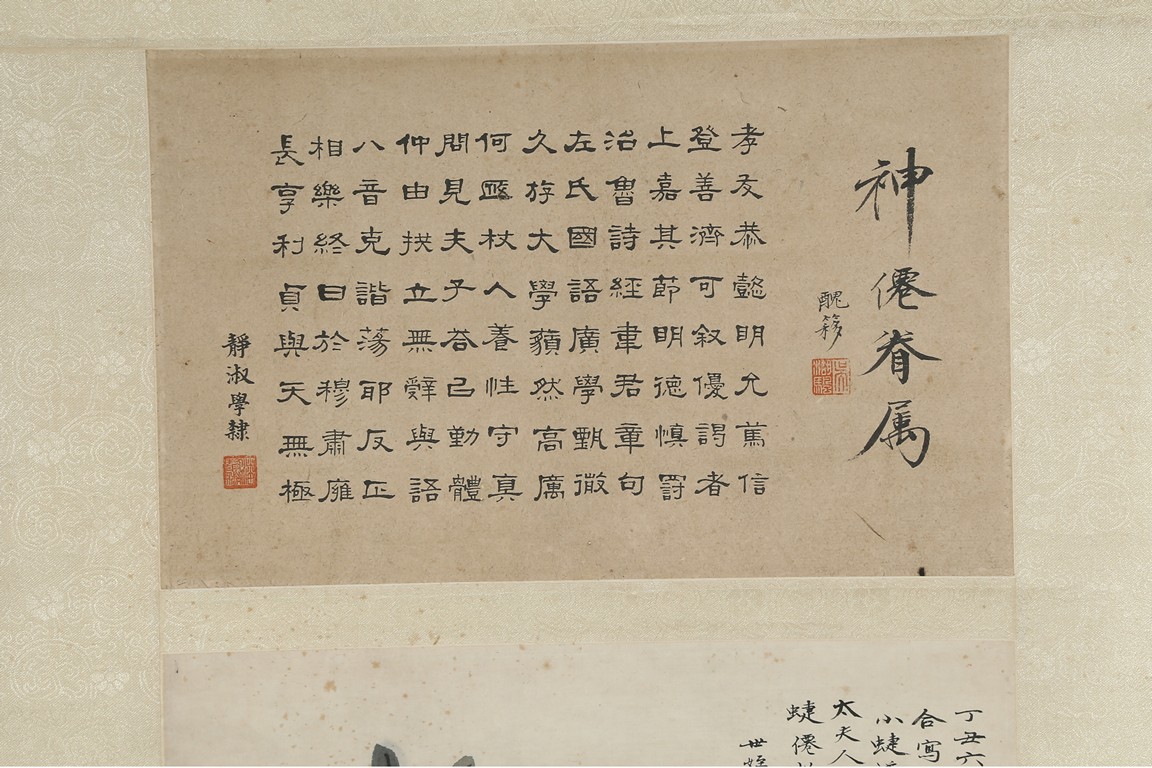 神僊眷属
醜簃
孝友恭懿明允篤信
登善濟可叙優謁者
上嘉其莭明徳慎罰
治魯詩經韋君章句
左氏國語廣學甄微
久斿大學藐然高厲
何杖人養性守真
問見夫子荅己勤體
仲由拱立無辭與語
八音克諧蕩耶反正
相樂終日於穆肅雍
長享利貞與天無極
靜淑學隸
丁丑六
合寫
小蜨
太夫人
蜨僊
世姪